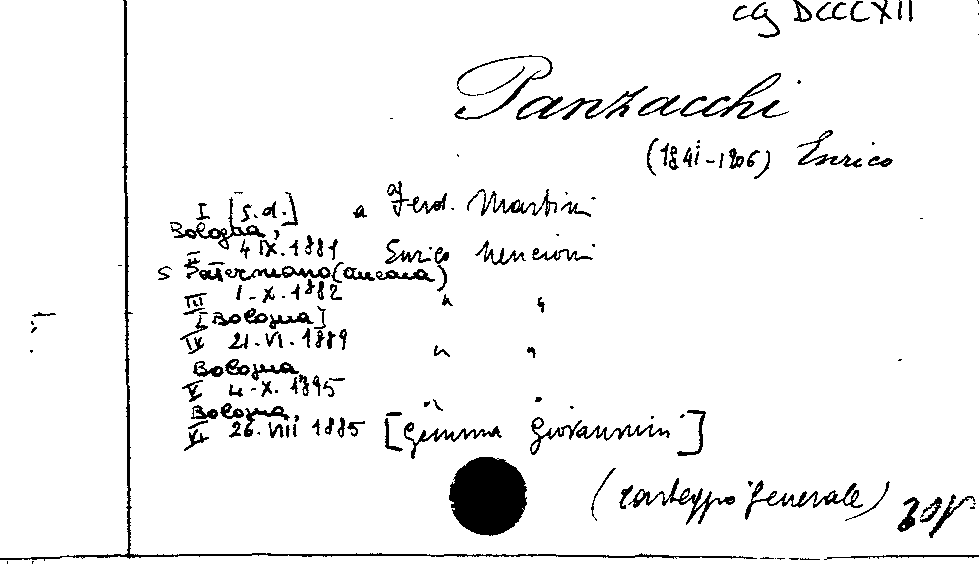 CG DCCCXII
Panzacchi
(1841-1906) Enrico
I [s.d.] a Ferd. Martini
Bologna,
II 4 IX. 1881 Enrico Nencioni
S Paterniano (Ancona)
III 1-X-1882 " "
[Bologna]
IV 21.VI.1889 " "
Bologna
V 4-X.1895 " "
Bologna,
VI 26.VIII 1885 [Gemma Giovannini]
(carteggio generale)